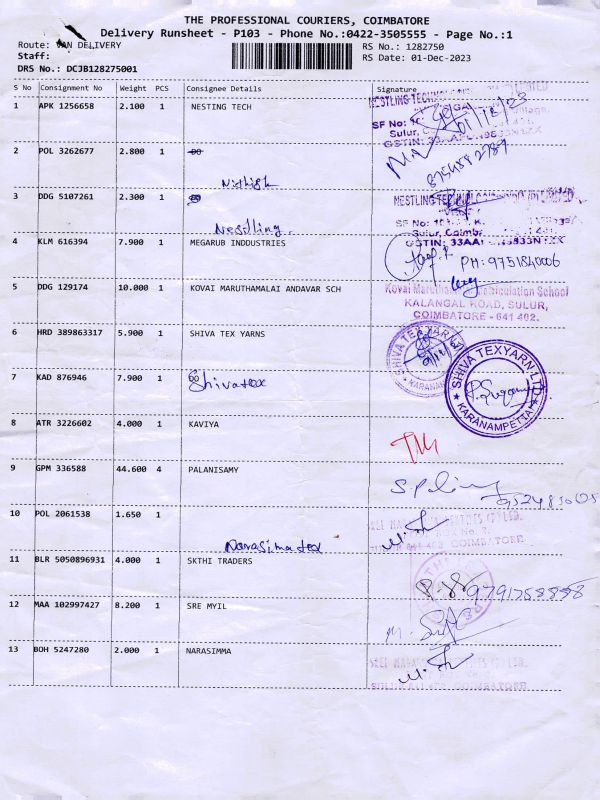 THE PROFESSIONAL COURIERS, COIMBATORE
Delivery Runsheet - P103 - Phone No.:0422-3505555 - Page No.:1
Route: VAN DELIVERY RS No.: 1282750
Staff: RS Date: 01-Dec-2023
DRS No.: DCJB128275001
S No Consignment No Weight PCS Consignee Details Signature
1 APK 1256658 2.100 1 NESTING TECH
01/12/23
SF No:
Sulur,
GSTIN:
2 POL 3262677 2.800 1
Nithish
3 DDG 5107261 2.300 1
Nestling
SF No:
Sulur, Coimb
GSTIN: 33AA
4 KLM 616394 7.900 1 MEGARUB INDDUSTRIES
PH: 9751840006
5 DDG 129174 10.000 1 KOVAI MARUTHAMALAI ANDAVAR SCH
School
KALANGAL ROAD, SULUR,
COIMBATORE - 641 402.
6 HRD 389863317 5.900 1 SHIVA TEX YARNS
SHIVA TEXYARN
7 KAD 876946 7.900 1 Shivatex
SHIVA TEXYARN LTD
KARANAMPETTAI
8 ATR 3226602 4.000 1 KAVIYA
9 GPM 336588 44.600 4 PALANISAMY
10 POL 2061538 1.650 1
Narasimatex
COIMBATORE
11 BLR 5050896931 4.000 1 SKTHI TRADERS
9791758888
12 MAA 102997427 8.200 1 SRE MYIL
13 BOH 5247280 2.000 1 NARASIMMA